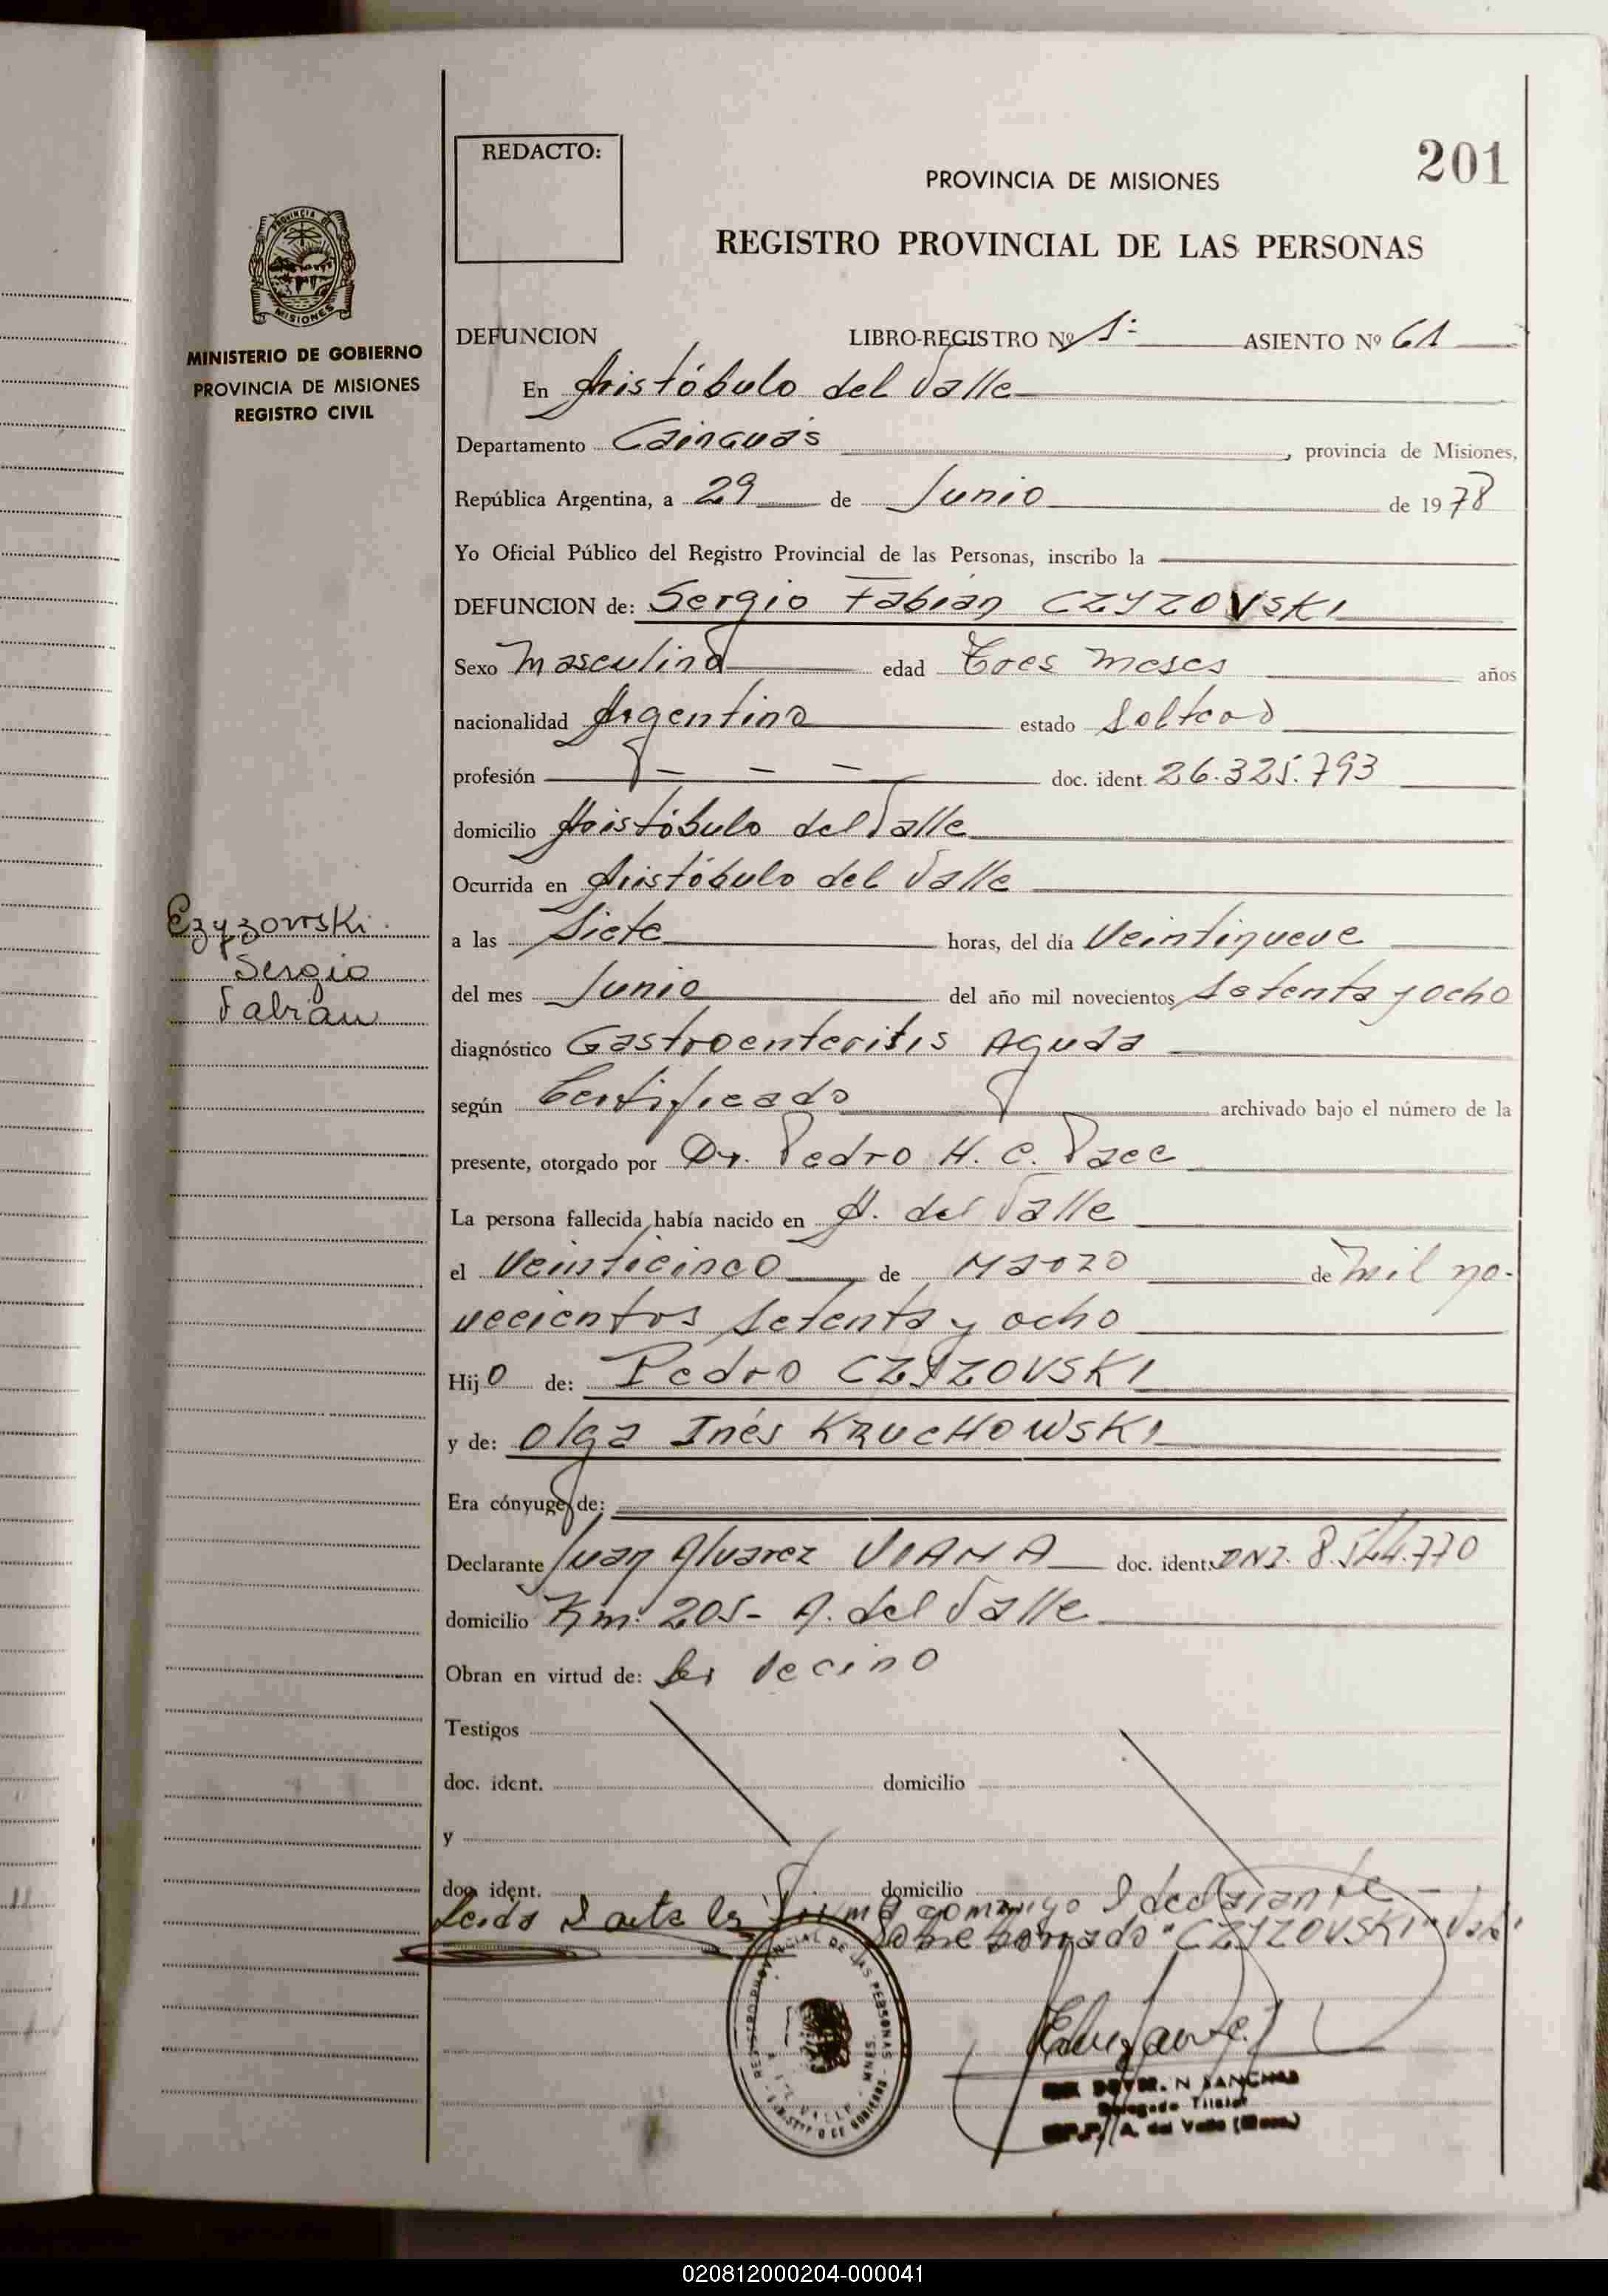 REDACTO:
201
PROVINCIA DE MISIONES
REGISTRO PROVINCIAL DE LAS PERSONAS
PROVINCIA DE
MISIONES
MINISTERIO DE GOBIERNO
PROVINCIA DE MISIONES
REGISTRO CIVIL
DEFUNCION LIBRO-REGISTRO Nº 1º ASIENTO Nº 61
En Aristóbulo del Valle
Departamento Cainguás, provincia de Misiones,
República Argentina, a 29 de Junio de 1978
Yo Oficial Público del Registro Provincial de las Personas, inscribo la
DEFUNCION de: Sergio Fabián CZYZOVSKI
Sexo Masculino edad Tres meses años
nacionalidad Argentina estado Soltero
profesión — — — doc. ident. 26.325.793
domicilio Aristóbulo del Valle
Ocurrida en Aristóbulo del Valle
Czyzovski
Sergio
Fabián
a las Siete horas, del día Veintinueve
del mes Junio del año mil novecientos Setenta y ocho
diagnóstico Gastroenteritis Aguda
según Certificado archivado bajo el número de la
presente, otorgado por Dr. Pedro H. C.
La persona fallecida había nacido en A. del Valle
el Veinticinco de Marzo de Mil no-
vecientos Setenta y ocho
Hijo de: Pedro CZYZOVSKI
y de: Olga Inés KRUCHOWSKI
Era cónyuge de:
Declarante Juan Alvarez VIANA doc. ident. DNI. 8.544.770
domicilio Km. 205- A. del Valle
Obran en virtud de: Ser Vecino
Testigos
doc. ident. domicilio
y
doc. ident. domicilio
Leída el acta la firma conmigo el declarante —
Sobre borrado "CZYZOVSKI"
REGISTRO PROVINCIAL DE LAS PERSONAS
N SANCHEZ
Delegado Titular
A. del Valle (Mnes.)
020812000204-000041